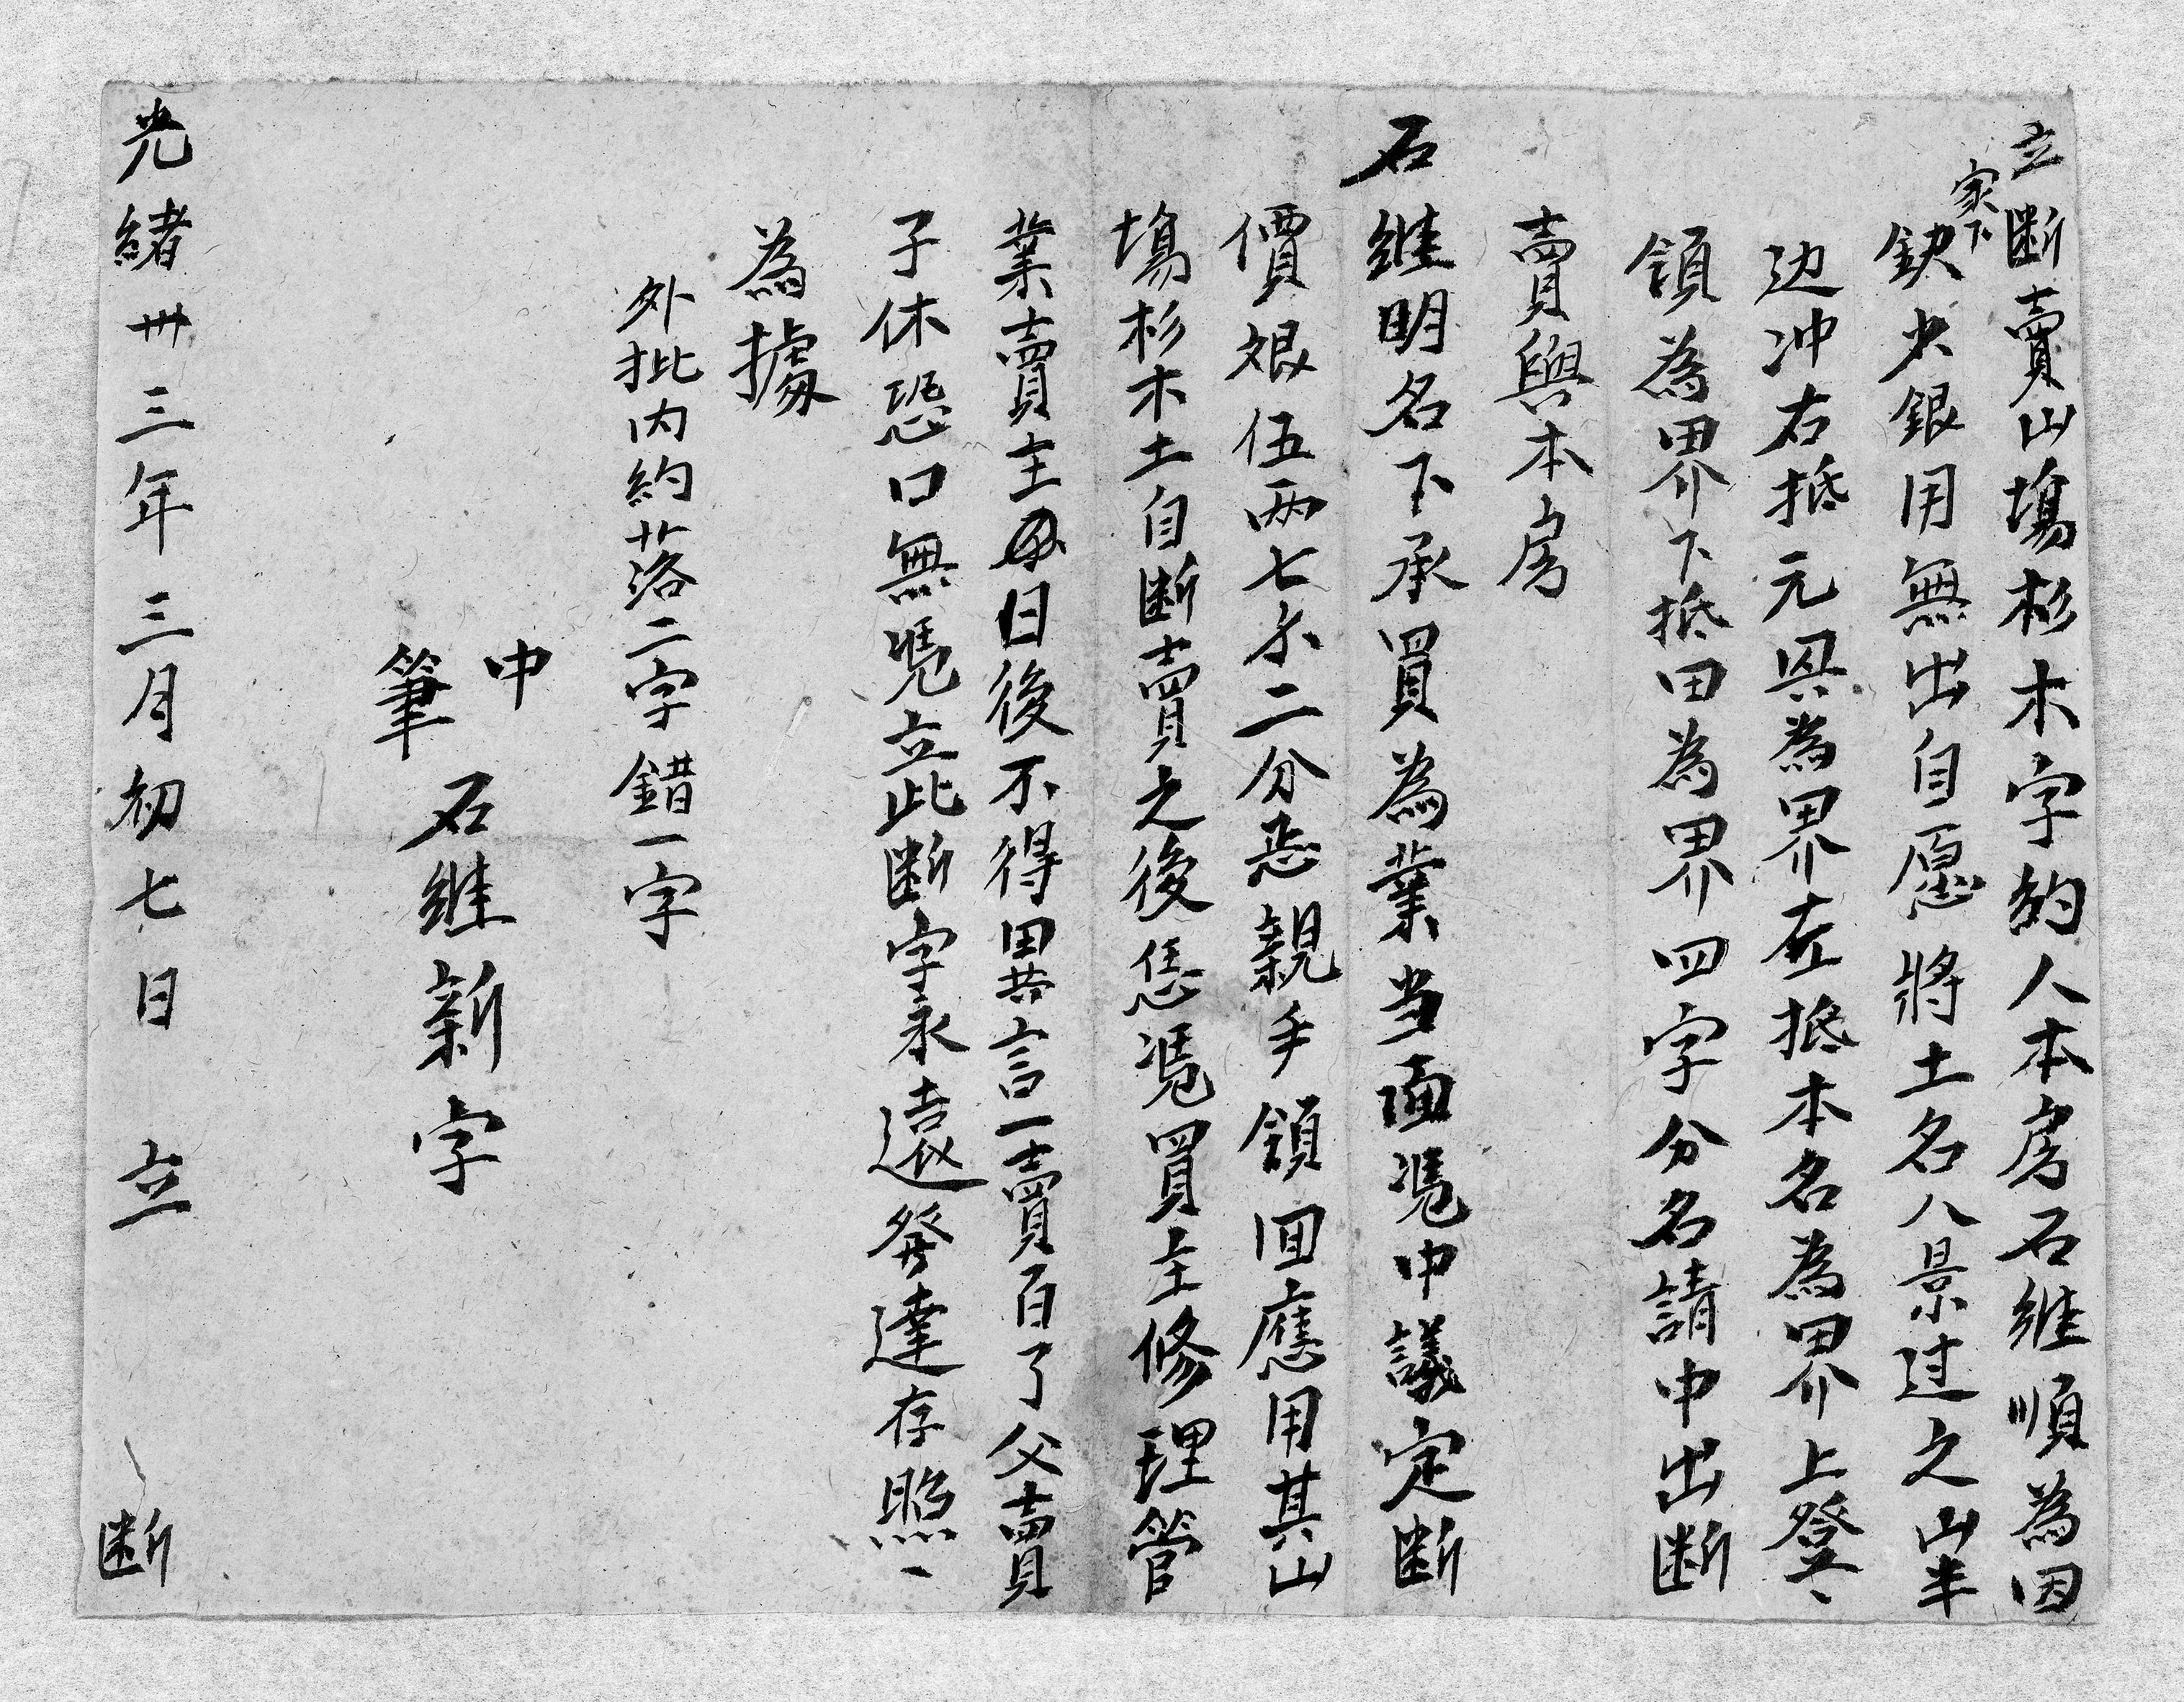 立断賣山塲杉木字約人本房石維順為因
家下
缺少銀用無出自愿將土名八景过之山半
边冲右抵元具為界左抵本名為界上登
領為界下抵田為界四字分名請中出断
賣與本房
石維明名下承買為業当面凴中議定断
價艮伍両七尒二分恶親手領囬應用其山
塲杉木土自断賣之後恁凴買主修理管
業賣主日後不得異言一賣百了父賣
子休恐口無凴立此断字永遠發達存照
為據
外批内約落二字錯一字
中
筆 石維新字
光緒卅三年三月初七日 立 断